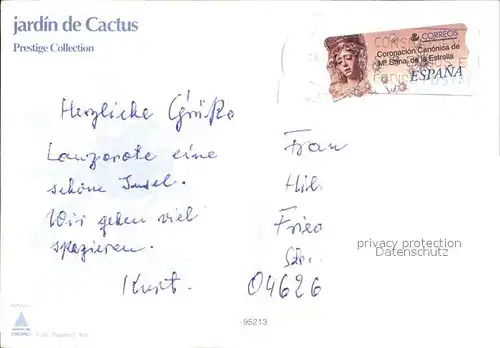 jardín de Cactus
Prestige Collection
CORREOS
Coronación Canónica de
Mª Stma. de la Estrella
ESPAÑA
Herzliche Grüße
Lanzarote eine
schöne Insel.
Wir gehen viel
spazieren.
Kurt.
Frau
Hil.
Frieo
04626
privacy protection
Datenschutz
95213